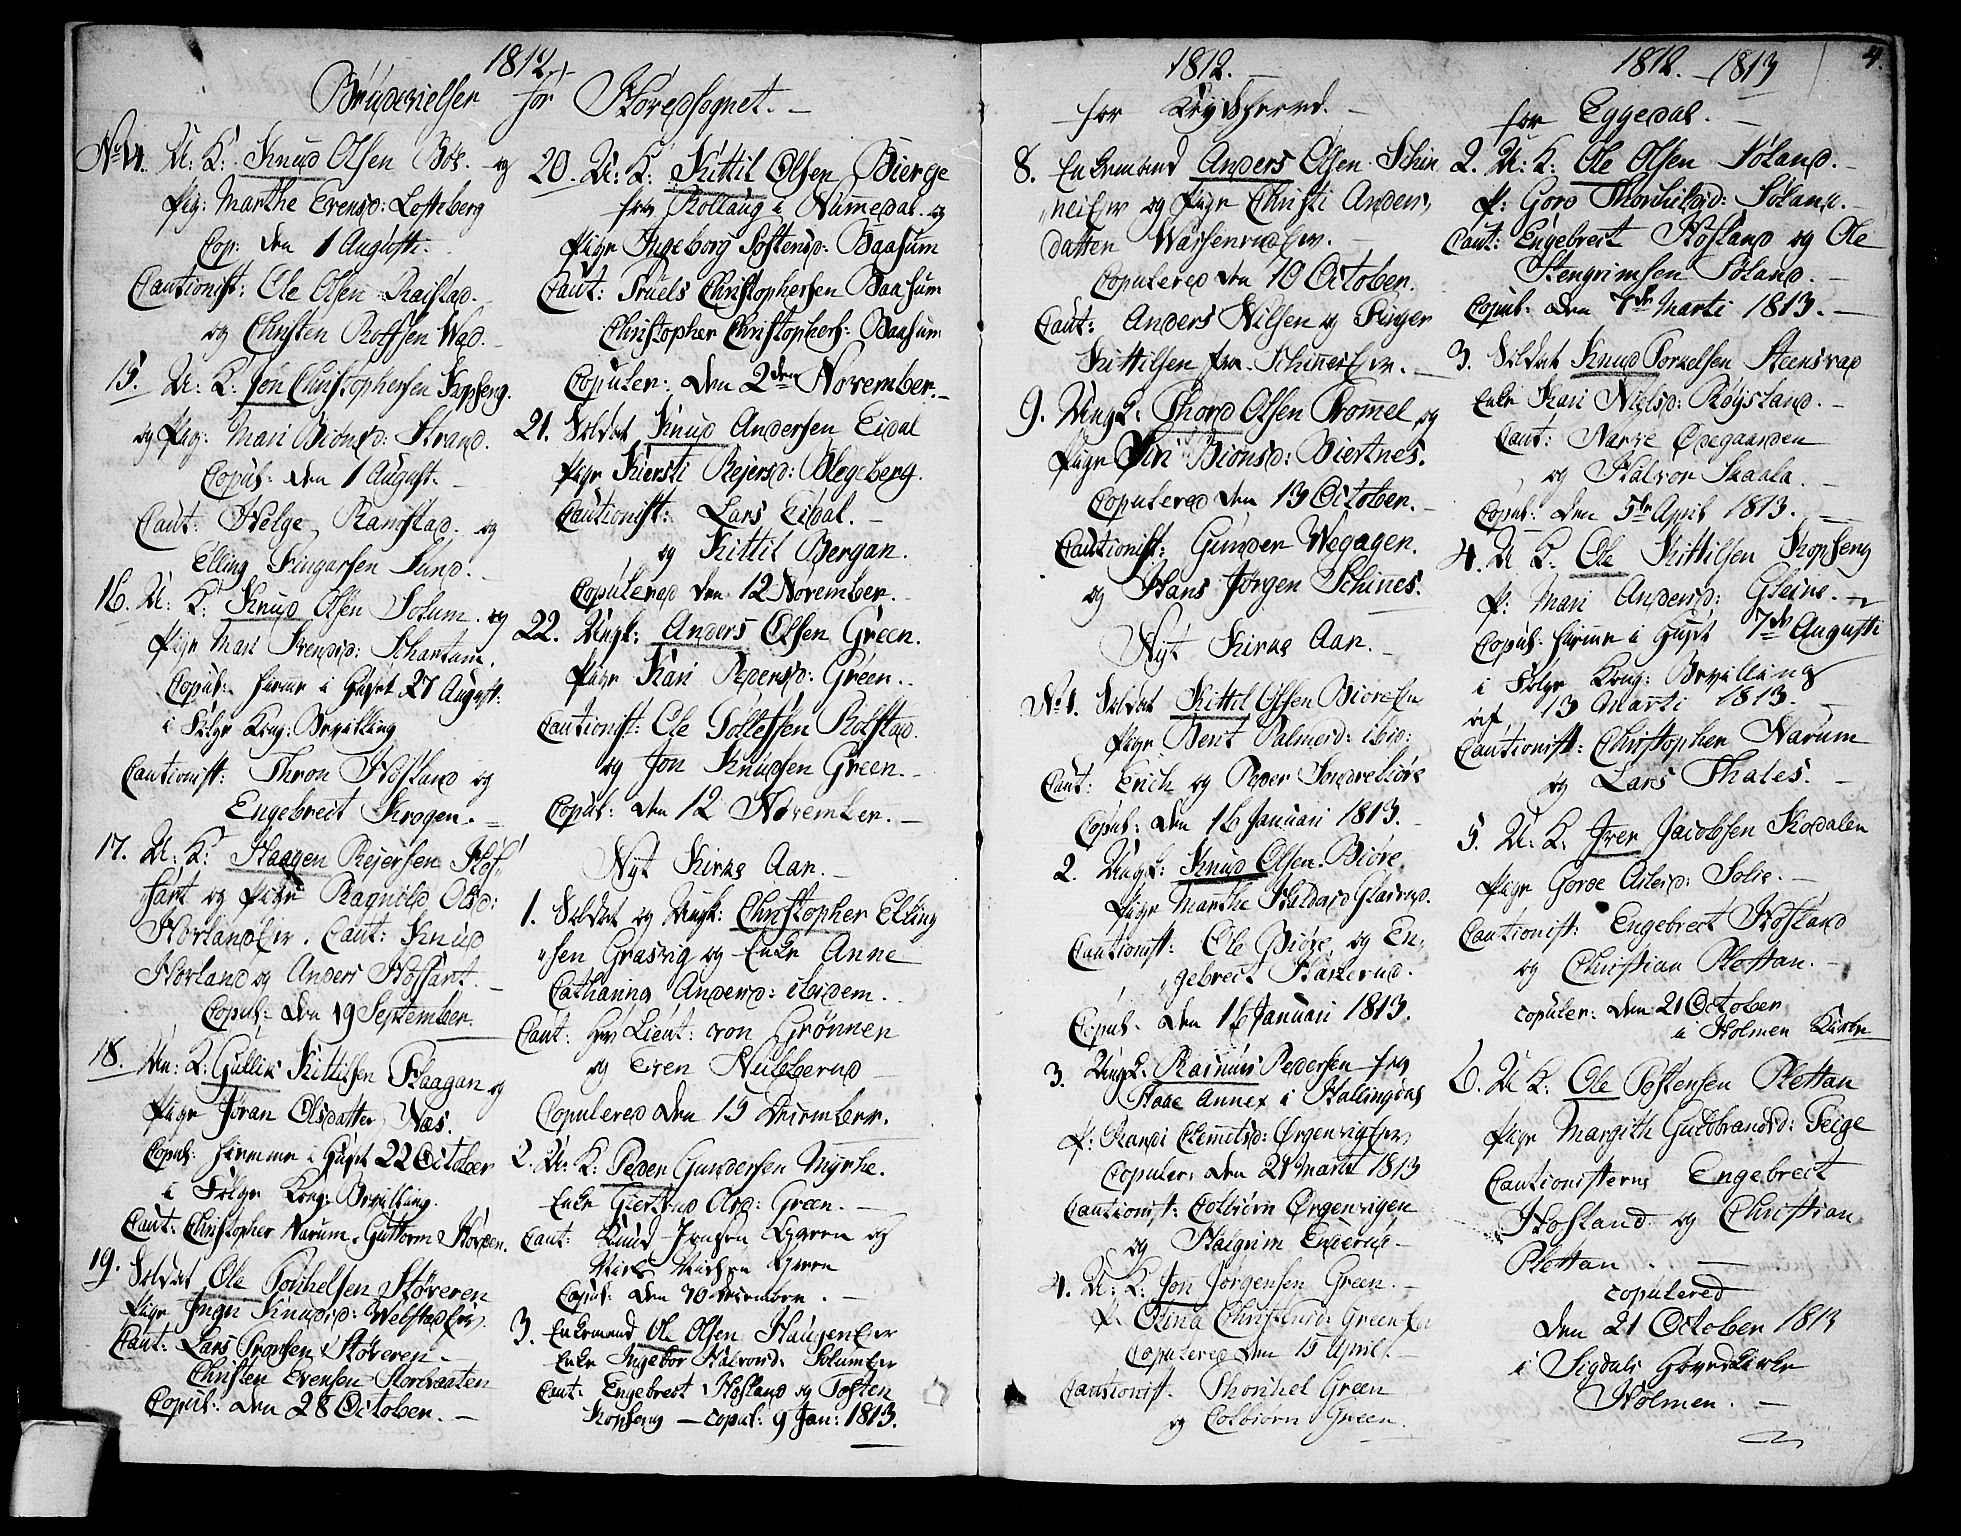 1812.
Brudevielser for Hovedsognet.
No 14. U: K: Knud Olsen Bøe. og
Pig: Marthe Evensd: Lofteberg
Cop: den 1 Augusti.
Cautionist: Ole Olsen
og Christen Rolfsen Wad.
15. U: K: Jon Christophersen Kopseng.
og Pig: Mari Biønsd: Strand.
Copul: den 1 August.
Caut: Helge Ramstad. og
Elling Fingarsen Lund.
16. U: K: Knud Olsen Solum. og
Pige Mari Svendsd: Schartum.
Copul: hiemme i Huset 27 August:
i Følge Kong: Bevilling
Cautionist: Thron Hofland og
Engebrect Krogen.
17. U: K: Haagen Rejersen Hof-
fart og Pige Ragnild Olsd:
Hovlandeier. Caut: Knud
Hovland og Anders Hoffart.
Copul: den 19 September.
18. Un: K: Gullik Kittilsen Haagan og
Pige Jøran Olsdatter Næs.
Copul: hiemme i Huset 22 October
i Følge Kong: Bevilling.
Caut: Christopher Narum, Guttorm Hovden.
19. Soldat Ole Torkelsen Høveren
Pige Ingri Knudsd: Welstadeier.
Caut: Lars Tronsen Høveren
Christen Evensen
Copul: den 28 October.
20. U: K: Kittil Olsen Bierge
fra Rollaug i Nummedal. og
Pige Ingeborg Tostensd: Baasum
Caut: Truels Christophersen Baasum
Christopher Christophers: Baasum
Copuler: den 2den November.
21. Soldat Knud Andersen Eidal
Pige Kiersti Rejersd: Blegeberg.
Cautionist: Lars Eidal.
og Kittil Bergan.
Copulered den 12 November.
22. Ungk: Anders Olsen Green.
Pige Kari Pedersd: Green.
Cautionist: Ole Tollefsen Rolfstad.
og Jon Knudsen Green.
Copul: den 12 November.
Nyt Kirke Aar.
1. Soldat og Ungk: Christopher Elling
sen Grasvig og Enke Anne
Cathanna Andersd: ibidem.
Caut: Hr Lieut: von Grønnen
og Even Nubberud
Copulered den 15 December.
2. U: K: Peder Gundersen Myrhe.
Enke Giertrud Olsd: Green.
Caut: Knud Jensen Green og
Niels Nielsen Green
Copul: den 30 December.
3. Enkemand Ole Olsen Haugeneier
Enke Ingebor Halvorsd: Solumeier
Caut: Engebrect Hofland og Tosten
Kopseng — copul: 9 Jan: 1813.
1812.
for Krydsherred.
8. Enkemand Anders Olsen Skin
neseier og Pige Christi Anders
datter Wassenrudeier.
Copulered den 10 October.
Caut: Anders Nilsen og Finger
Kittilsen fra Schinneseier.
9. Ungk: Thord Olsen Trommel og
Pige Siri Biønsd: Biertnes.
Copulered den 13 October.
Cautionist: Gunder Wegagen.
og Hans Jørgen Schinnes.
Nyt Kirke Aar.
No 1. Soldat Kittil Olsen Bioreeier
Pige Berit Palmesd: ibid:
Caut: Erich og Peder Sondrebiøre
Copul: den 16 Januari 1813.
2. Ungk: Knud Olsen Biøre
Pige Marthe Haldorsd Glasrud.
Cautionist: Ole Biøre og En-
gebrect Haskerud.
Copul: den 16 Januari 1813.
3. Ungk: Rasmus Pedersen fra
Annex i Hallingdal
P: Randi Clemmetsd: Ørgenvigeier
Copuler: den 21 Marti 1813
Cautionist: Colbiørn Ørgenvigen
og Halgrim Enderud
4. U: K: Jon Jørgensen Green.
P. Olina Christensd: Greeneier
Copulered den 15 April.
Cautionist. Thorkel Green
og Colbiørn Green.
1812. 1813
4.
for Eggedal.
2. U: K: Ole Olsen Søland.
P: Goro Thorkilsd: Søland.
Caut: Engebrect Hofland og Ole
Stengrimsen Søland.
Copul: den 7de Marti 1813.
3. Soldat Knud Torkelsen Steensrud
Enke Kari Nielsd: Røysland.
Caut: Narve Ødegaarden
og Halvor Skaala.
Copul: den 5te April 1813.
4. U K: Ole Kittilsen Kopseng
P: Mari Andersd: Gleine.
Copul: hiemme i Huset 7de Augusti
i Følge Kong: Bevilling
af 13 Marti 1813.
Cautionist: Christopher Narum
og Lars Thales.
5. U: K: Iver Jacobsen Kodalen
Pige Goroe Asles​d: Solie.
Cautionist: Engebrect Hofland
og Christian Plettan.
copuler: den 21 October
i Holmen Kirke
6. U K: Ole Tostensen Plettan
Pige Margith Guldbrandsd: Teige
Cautionisterne Engebrect
Hofland og Christian
Plettan.
copulered
den 21 October 1813
i Sigdals Hovedkirke
Holmen.